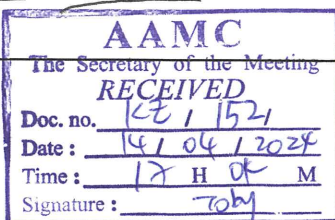 AAMC
The Secretary of the Meeting
RECEIVED
Doc. no. KZ / 152/
Date : 14 / 04 / 2024
Time : 17 H 04 M
Signature : Toby